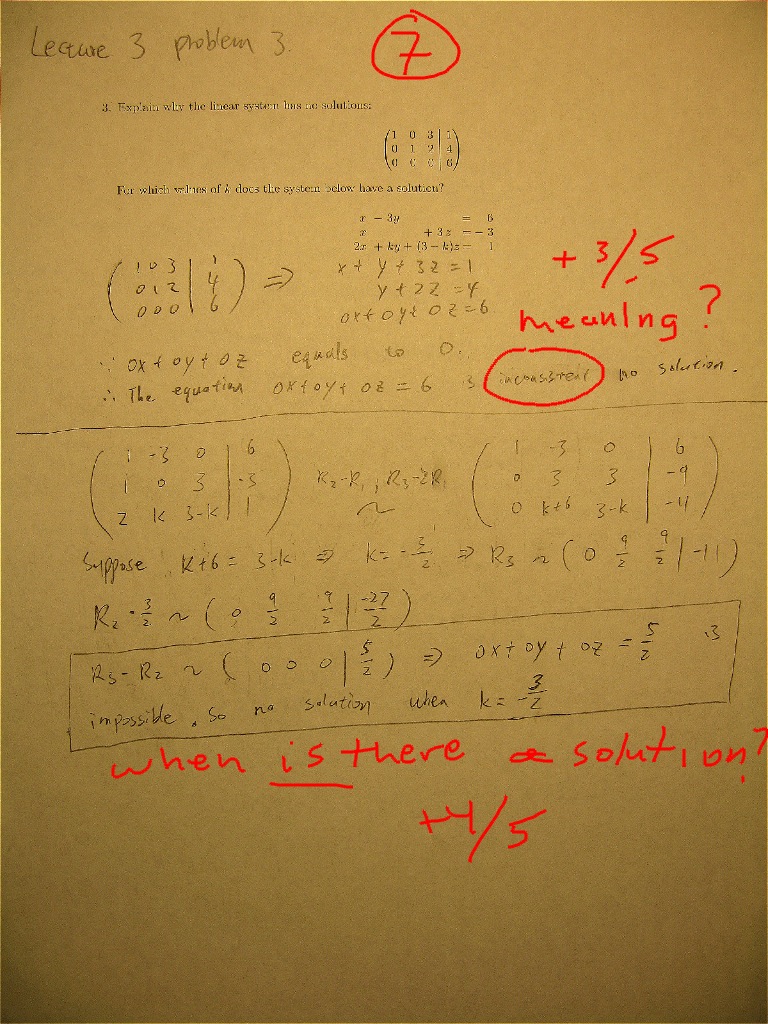 Lecture 3 problem 3.
7
3. Explain why the linear system has no solutions:
(1 0 3 | 1
0 1 2 | 4
0 0 0 | 6)
For which values of k does the system below have a solution?
x - 3y = 6
x + 3z = -3
2x + ky + (3 - k)z = 1
+3/5
meaning?
(1 0 3 | 1
0 1 2 | 4
0 0 0 | 6) ⇒
x + y + 3z = 1
y + 2z = 4
0x + 0y + 0z = 6
∵ 0x + 0y + 0z equals to 0.
∴ The equation 0x + 0y + 0z = 6 is inconsistent no solution.
(1 -3 0 | 6
1 0 3 | -3
2 k 3-k | 1)
R₂-R₁, R₃-2R₁
~
(1 -3 0 | 6
0 3 3 | -9
0 k+6 3-k | -11)
Suppose k+6 = 3-k ⇒ k = -3/2 ⇒ R₃ ~ (0 9/2 9/2 | -11)
R₂ · 3/2 ~ (0 9/2 9/2 | -27/2)
R₃ - R₂ ~ (0 0 0 | 5/2) ⇒ 0x + 0y + 0z = 5/2 is
impossible. So no solution when k = -3/2
when is there a solution?
+4/5